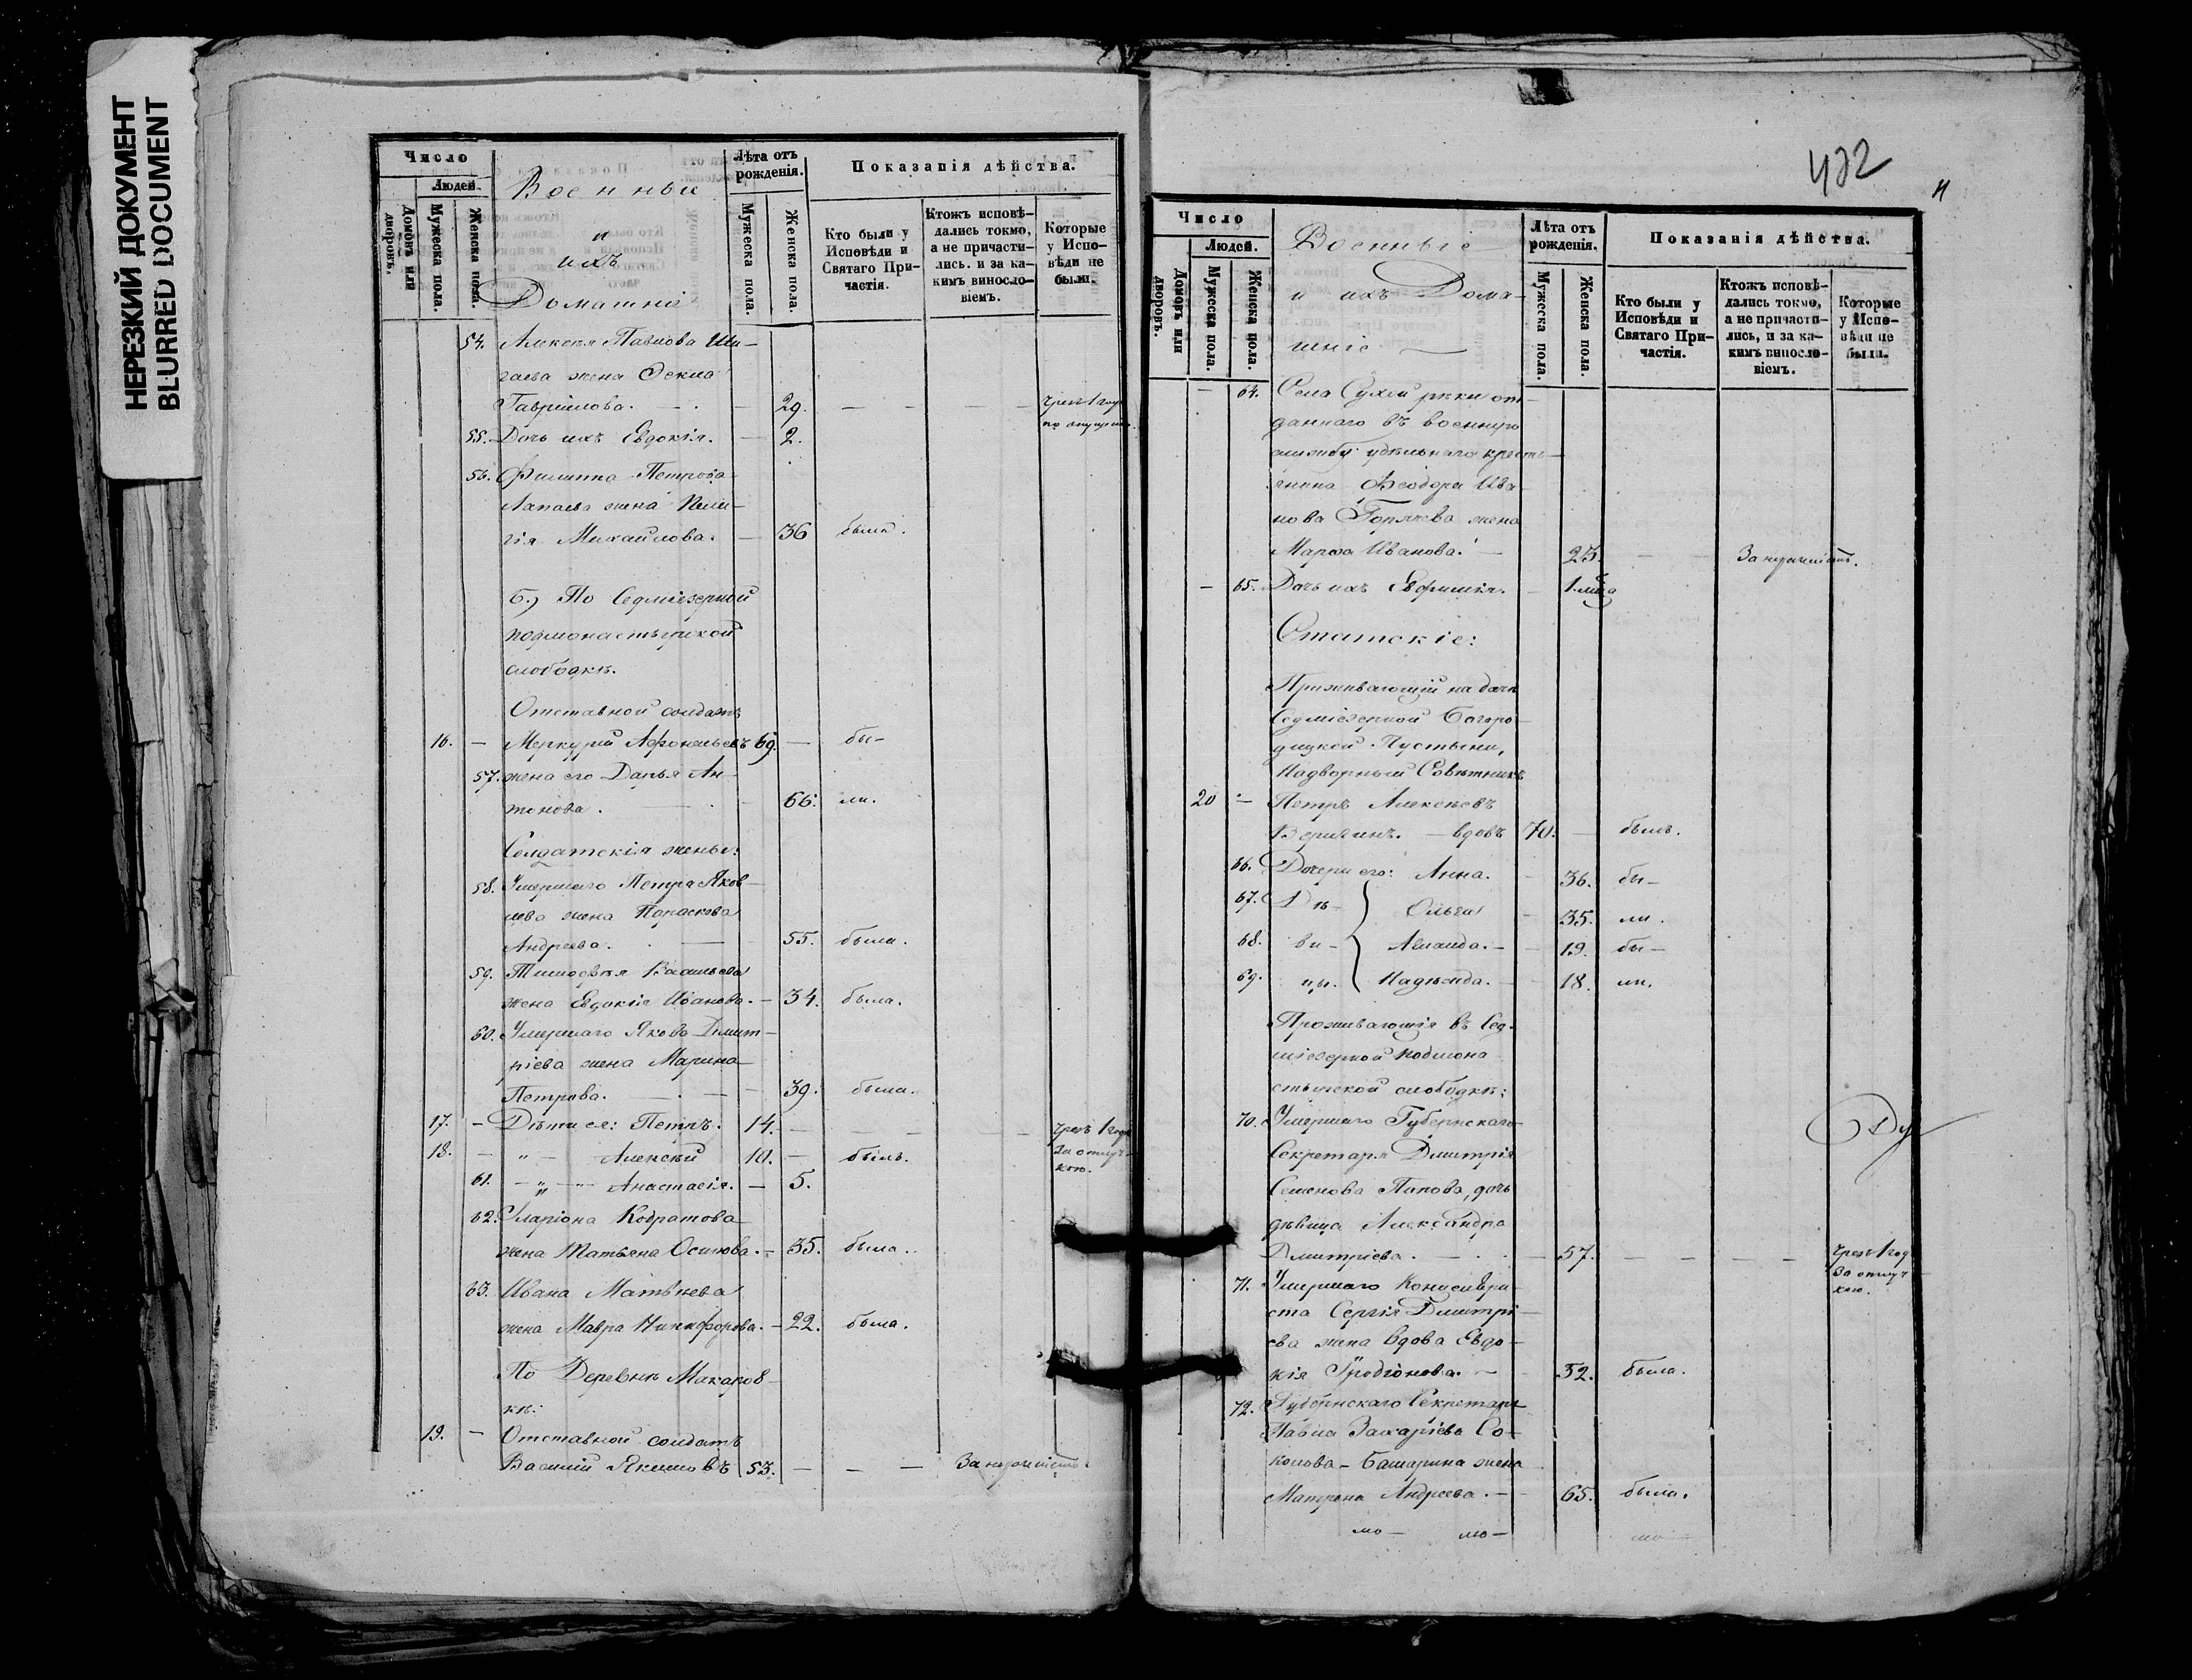 НЕРЕЗКИЙ ДОКУМЕНТ
BLURRED DOCUMENT
Число
Людей.
Домовъ или дворовъ.
Мужеска пола.
Женска пола.
Военные
и
ихъ
Домашніе
Лѣта отъ рожденія.
Мужеска пола.
Женска пола.
Показанія дѣйства.
Кто были у Исповѣди и Святаго Причастія.
Ктожъ исповѣдались токмо, а не причастились. и за какимъ винословіемъ.
Которые у Исповѣди не были.
54. Алексѣя Павлова Ши-
гаева жена Ѳекла
Гавріилова. — 29. — — — чрезъ 1 годъ
55. Дочь ихъ Евдокія. — 2.
56. Филиппа Петрова
Лапаева жена Пела-
гія Михайлова. — 36 была.
б.) По Седміезерной
подмонастырской
слободкѣ.
Отставной солдатъ
16. — Меркурій Афонасьевъ 69. — бы-
57. жена его Дарья Ан-
тонова. — 66. ли.
Солдатскія жены:
58. Умершаго Петра Яков-
лева жена Параскева
Андреева. — 55. была.
59. Тимофѣя Васильева
жена Евдокія Иванова. — 34. была.
60. Умершаго Якова Димит-
ріева жена Марина
Петрова. — 39. была.
17. — Дѣти ея: Петръ. 14. — — — — чрезъ 1 годъ
18. — „ — Алексѣй 10. — былъ. За отлуч-
кою.
61. — „ — Анастасія. — 5.
62. Иларіона Кодратова
жена Татьяна Осипова. — 35. была.
63. Ивана Матвѣева
жена Мавра Никифорова. — 22. была.
По Деревнѣ Макаров-
кѣ:
19. — Отставной солдатъ
Василій Якимовъ 53. — — — За нерачитъ.
432
Число
Людей.
Домовъ или дворовъ.
Мужеска пола.
Женска пола.
Военные
и ихъ Дома-
шніе —
Лѣта отъ рожденія.
Мужеска пола.
Женска пола.
Показанія дѣйства.
Кто были у Исповѣди и Святаго Причастія.
Ктожъ исповѣдались токмо, а не причастились, и за какимъ винословіемъ.
Которые у Исповѣди не были.
— 64. Села Сухой рѣки от-
даннаго въ военную
службу удѣльнаго кресть-
янина Ѳеодора Ива-
нова жена
Марѳа Иванова. — 23. — — За нерачитъ.
— 65. Дочь ихъ Евфимія. — 1.
Статскіе:
Проживающій на дачѣ
Седміезерной Богоро-
дицкой Пустыни,
Надворный Совѣтникъ
20 — Петръ Алексѣевъ
— вдовъ 70. — былъ.
66. Дочери его: Анна. — 36. бы-
67. Дѣ- Ольга — 35. ли.
68. ви- — 19. бы-
69. цы. Надежда. — 18. ли.
Проживающія въ Сед-
міезерной подмона-
стырской слободкѣ:
70. Умершаго Губернскаго
Секретаря Димитрія
Семенова Попова, дочь
дѣвица Александра
Дмитріева. — 57. — — — чрезъ 1 годъ
За отлуч-
кою.
71. Умершаго Канцеляри-
ста Сергія Димитрі-
ева жена вдова Евдо-
кія Иродіонова. — 52. была.
72. Губернскаго Секретаря
Павла Захаріева Со-
колова – Башарина жена
Матрона Андреева. — 65. была.